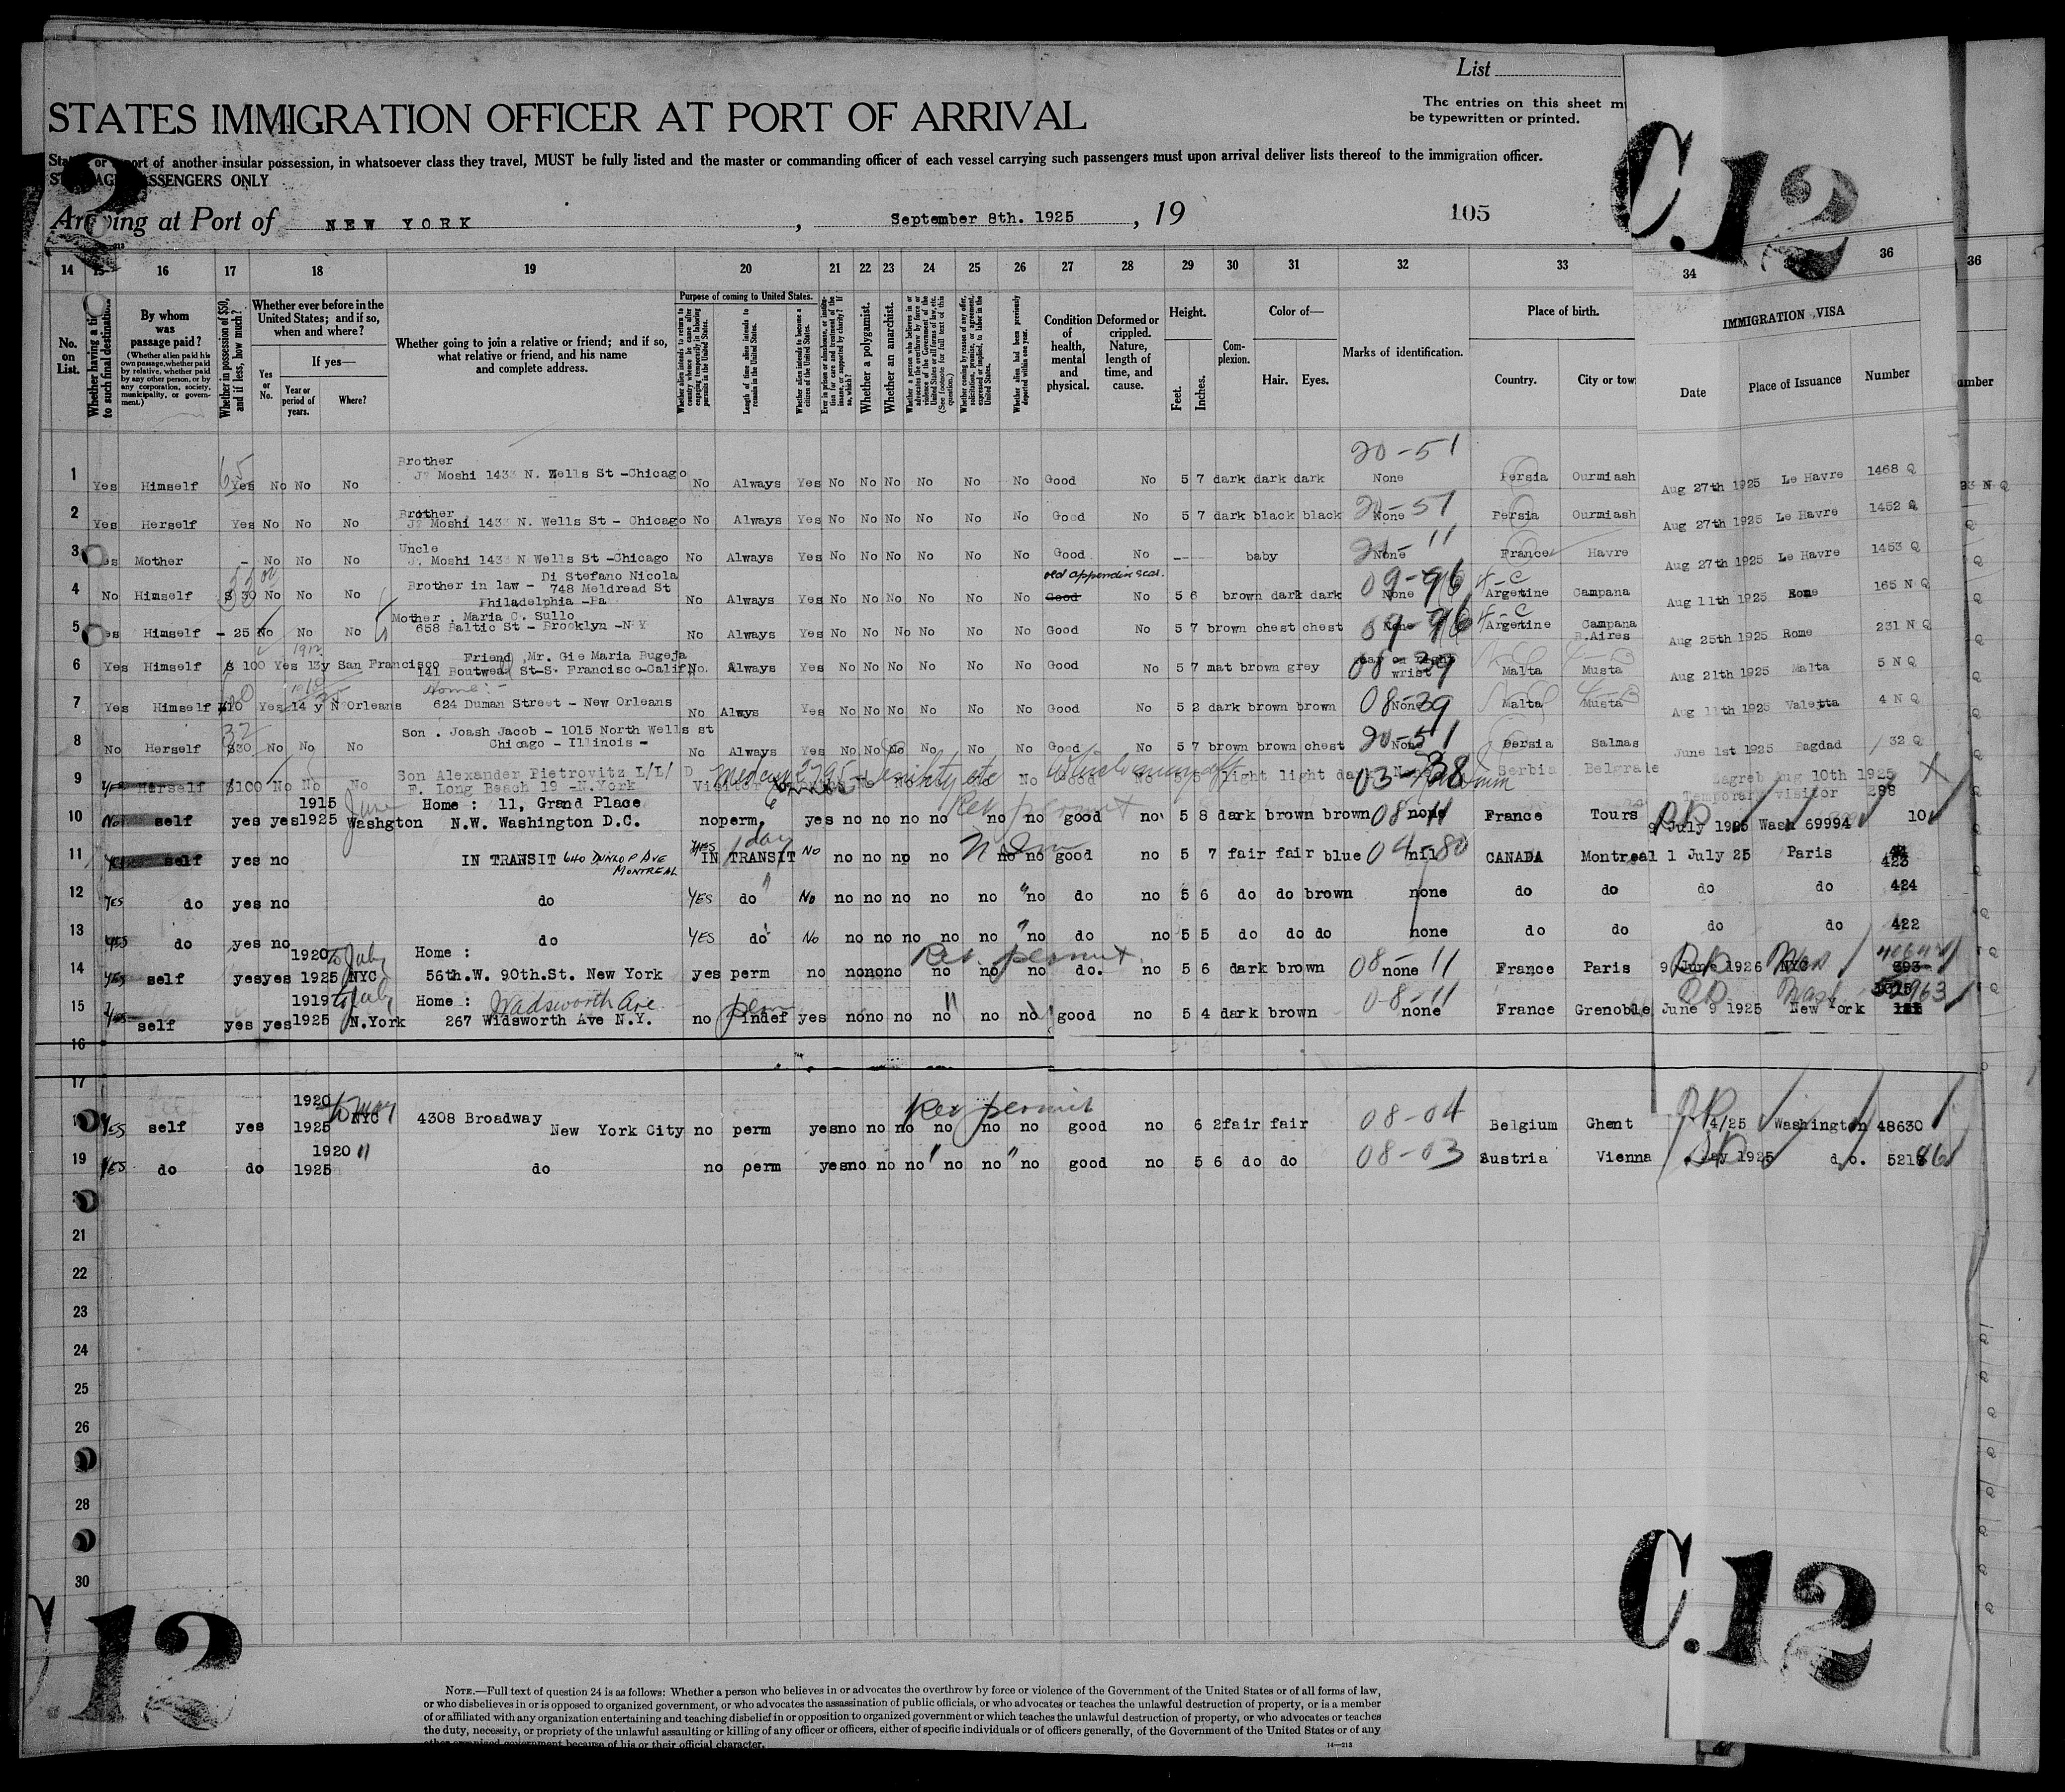 List
STATES IMMIGRATION OFFICER AT PORT OF ARRIVAL
The entries on this sheet m
be typewritten or printed.
of another insular possession, in whatsoever class they travel, MUST be fully listed and the master or commanding officer of each vessel carrying such passengers must upon arrival deliver lists thereof to the immigration officer.
PASSENGERS ONLY
C.12
Arriving at Port of NEW YORK , September 8th. 1925 , 19
105
14 15 16 17 18 19 20 21 22 23 24 25 26 27 28 29 30 31 32 33 34 36 36
No. on List.
Whether having a ticket to such final destination
By whom was passage paid?
(Whether alien paid his own passage, whether paid by relative, whether paid by any other person, or by any corporation, society, municipality, or government.)
Whether in possession of $50, and if less, how much?
Whether ever before in the United States; and if so, when and where?
Yes or No.
If yes—
Year or period of years.
Where?
Whether going to join a relative or friend; and if so, what relative or friend, and his name and complete address.
Purpose of coming to United States.
Whether alien intends to return to country whence he came after engaging temporarily in laboring pursuits in the United States.
Length of time alien intends to remain in the United States.
Whether alien intends to become a citizen of the United States.
Ever in prison or almshouse, or institution for care and treatment of the insane, or supported by charity? If so, which?
Whether a polygamist.
Whether an anarchist.
Whether a person who believes in or advocates the overthrow by force or violence of the Government of the United States or all forms of law, etc. (See footnote for full text of this question.)
Whether coming by reason of any offer, solicitation, promise, or agreement, expressed or implied, to labor in the United States.
Whether alien had been previously deported within one year.
Condition of health, mental and physical.
Deformed or crippled. Nature, length of time, and cause.
Height.
Feet.
Inches.
Complexion.
Color of—
Hair.
Eyes.
Marks of identification.
Place of birth.
Country.
City or tow
IMMIGRATION VISA
Date
Place of Issuance
Number
umber
20-51
1 Yes Himself Yes No No No Brother J? Moshi 143 N. Wells St -Chicago No Always Yes No No No No No No Good No 5 7 dark dark dark None Persia Ourmiash Aug 27th 1925 Le Havre 1468 Q
2 Yes Herself Yes No No No Brother J? Moshi 143 N. Wells St - Chicago No Always Yes No No No No No No Good No 5 7 dark black black 20-51 None Persia Ourmiash Aug 27th 1925 Le Havre 1452 Q
3 Yes Mother - No No No Uncle J. Moshi 143 N Wells St -Chicago No Always Yes No No No No No No Good No ---- baby None France Havre Aug 27th 1925 Le Havre 1453 Q
4 No Himself $ 30 No No No Brother in law - Di Stefano Nicola
748 Meldread St
Philadelphia -Pa No Always Yes No No No No No No old appendix scar. Good No 5 6 brown dark dark 09-96 None 4-C Argetine Campana Aug 11th 1925 Rome 165 N Q
5 Yes Himself - 25 No No No Mother . Maria C. Sullo
658 Baltic St - Brooklyn -N Y No Always Yes No No No No No No Good No 5 7 brown chest chest 09-96 None 4-C Argetine Campana B.Aires Aug 25th 1925 Rome 231 N Q
6 Yes Himself $ 100 Yes 1912 13y San Francisco Friend , Mr. Gie Maria Bugeja
141 Boutwea St-S. Francisco-Calif No. Always Yes No No No No No No Good No 5 7 mat brown grey 08-39 wrist Malta Musta Aug 21th 1925 Malta 5 N Q
7 Yes Himself Yes 14 y N Orleans Home:-
624 Duman Street - New Orleans No Always Yes No No No No No No Good No 5 2 dark brown brown 08-39 None Malta Musta Aug 11th 1925 Valetta 4 N Q
8 No Herself $30 No No No Son . Joash Jacob - 1015 North Wells st
Chicago - Illinois - No Always Yes No No No No No No Good No 5 7 brown brown chest 20-51 None Persia Salmas June 1st 1925 Bagdad 32 Q
9 Yes Herself $100 No No No Son Alexander Pietrovitz L/L/
F. Long Beach 19 -N.York Visitor No Good No light light 03-38 Serbia Belgrade Zagreb Aug 10th 1925
Temporary visitor 298
10 No self yes yes 1915 1925 June Washgton Home : 11, Grand Place
N.W. Washington D.C. no perm. yes no no no no no no good no 5 8 dark brown brown 08-11 none France Tours 9 July 1925 Wash 69994 10
Ret permit
11 Yes self yes no IN TRANSIT 640 DUNLOP AVE
MONTREAL YES IN TRANSIT 1 day NO no no no no no no good no 5 7 fair fair blue 04-80 nil CANADA Montreal 1 July 25 Paris 423
12 YES do yes no do YES do " NO no no no no no no do no 5 6 do do brown none do do do do 424
13 YES do yes no do YES do NO no no no no no no do no 5 5 do do do none do do do do 422
14 YES self yes yes 1920 to July 1925 NYC Home :
56th.W. 90th.St. New York yes perm no no no no no no no do. no 5 6 dark brown 08-11 none France Paris 9 June 1926 NYC 393
Ret. permit
15 Yes self yes yes 1919 to July 1925 N.York Home : Wadsworth Ave
267 Widsworth Ave N.Y. no indef yes no no no no no no good no 5 4 dark brown 08-11 none France Grenoble June 9 1925 New York
16
17
Ret permit
YES self yes 1920 to May 1925 NYC 4308 Broadway
New York City no perm yes no no no no no no good no 6 2 fair fair 08-04 Belgium Ghent 4/25 Washington 48630
19 YES do do 1920 " 1925 do no perm yes no no no no no no good no 5 6 do do 08-03 Austria Vienna May 1925 d o.
21
22
23
24
25
26
28
30
C.12
12
NOTE.—Full text of question 24 is as follows: Whether a person who believes in or advocates the overthrow by force or violence of the Government of the United States or of all forms of law,
or who disbelieves in or is opposed to organized government, or who advocates the assassination of public officials, or who advocates or teaches the unlawful destruction of property, or is a member
of or affiliated with any organization entertaining and teaching disbelief in or opposition to organized government or which teaches the unlawful destruction of property, or who advocates or teaches
the duty, necessity, or propriety of the unlawful assaulting or killing of any officer or officers, either of specific individuals or of officers generally, of the Government of the United States or of any
other organized government because of his or their official character.
14—213